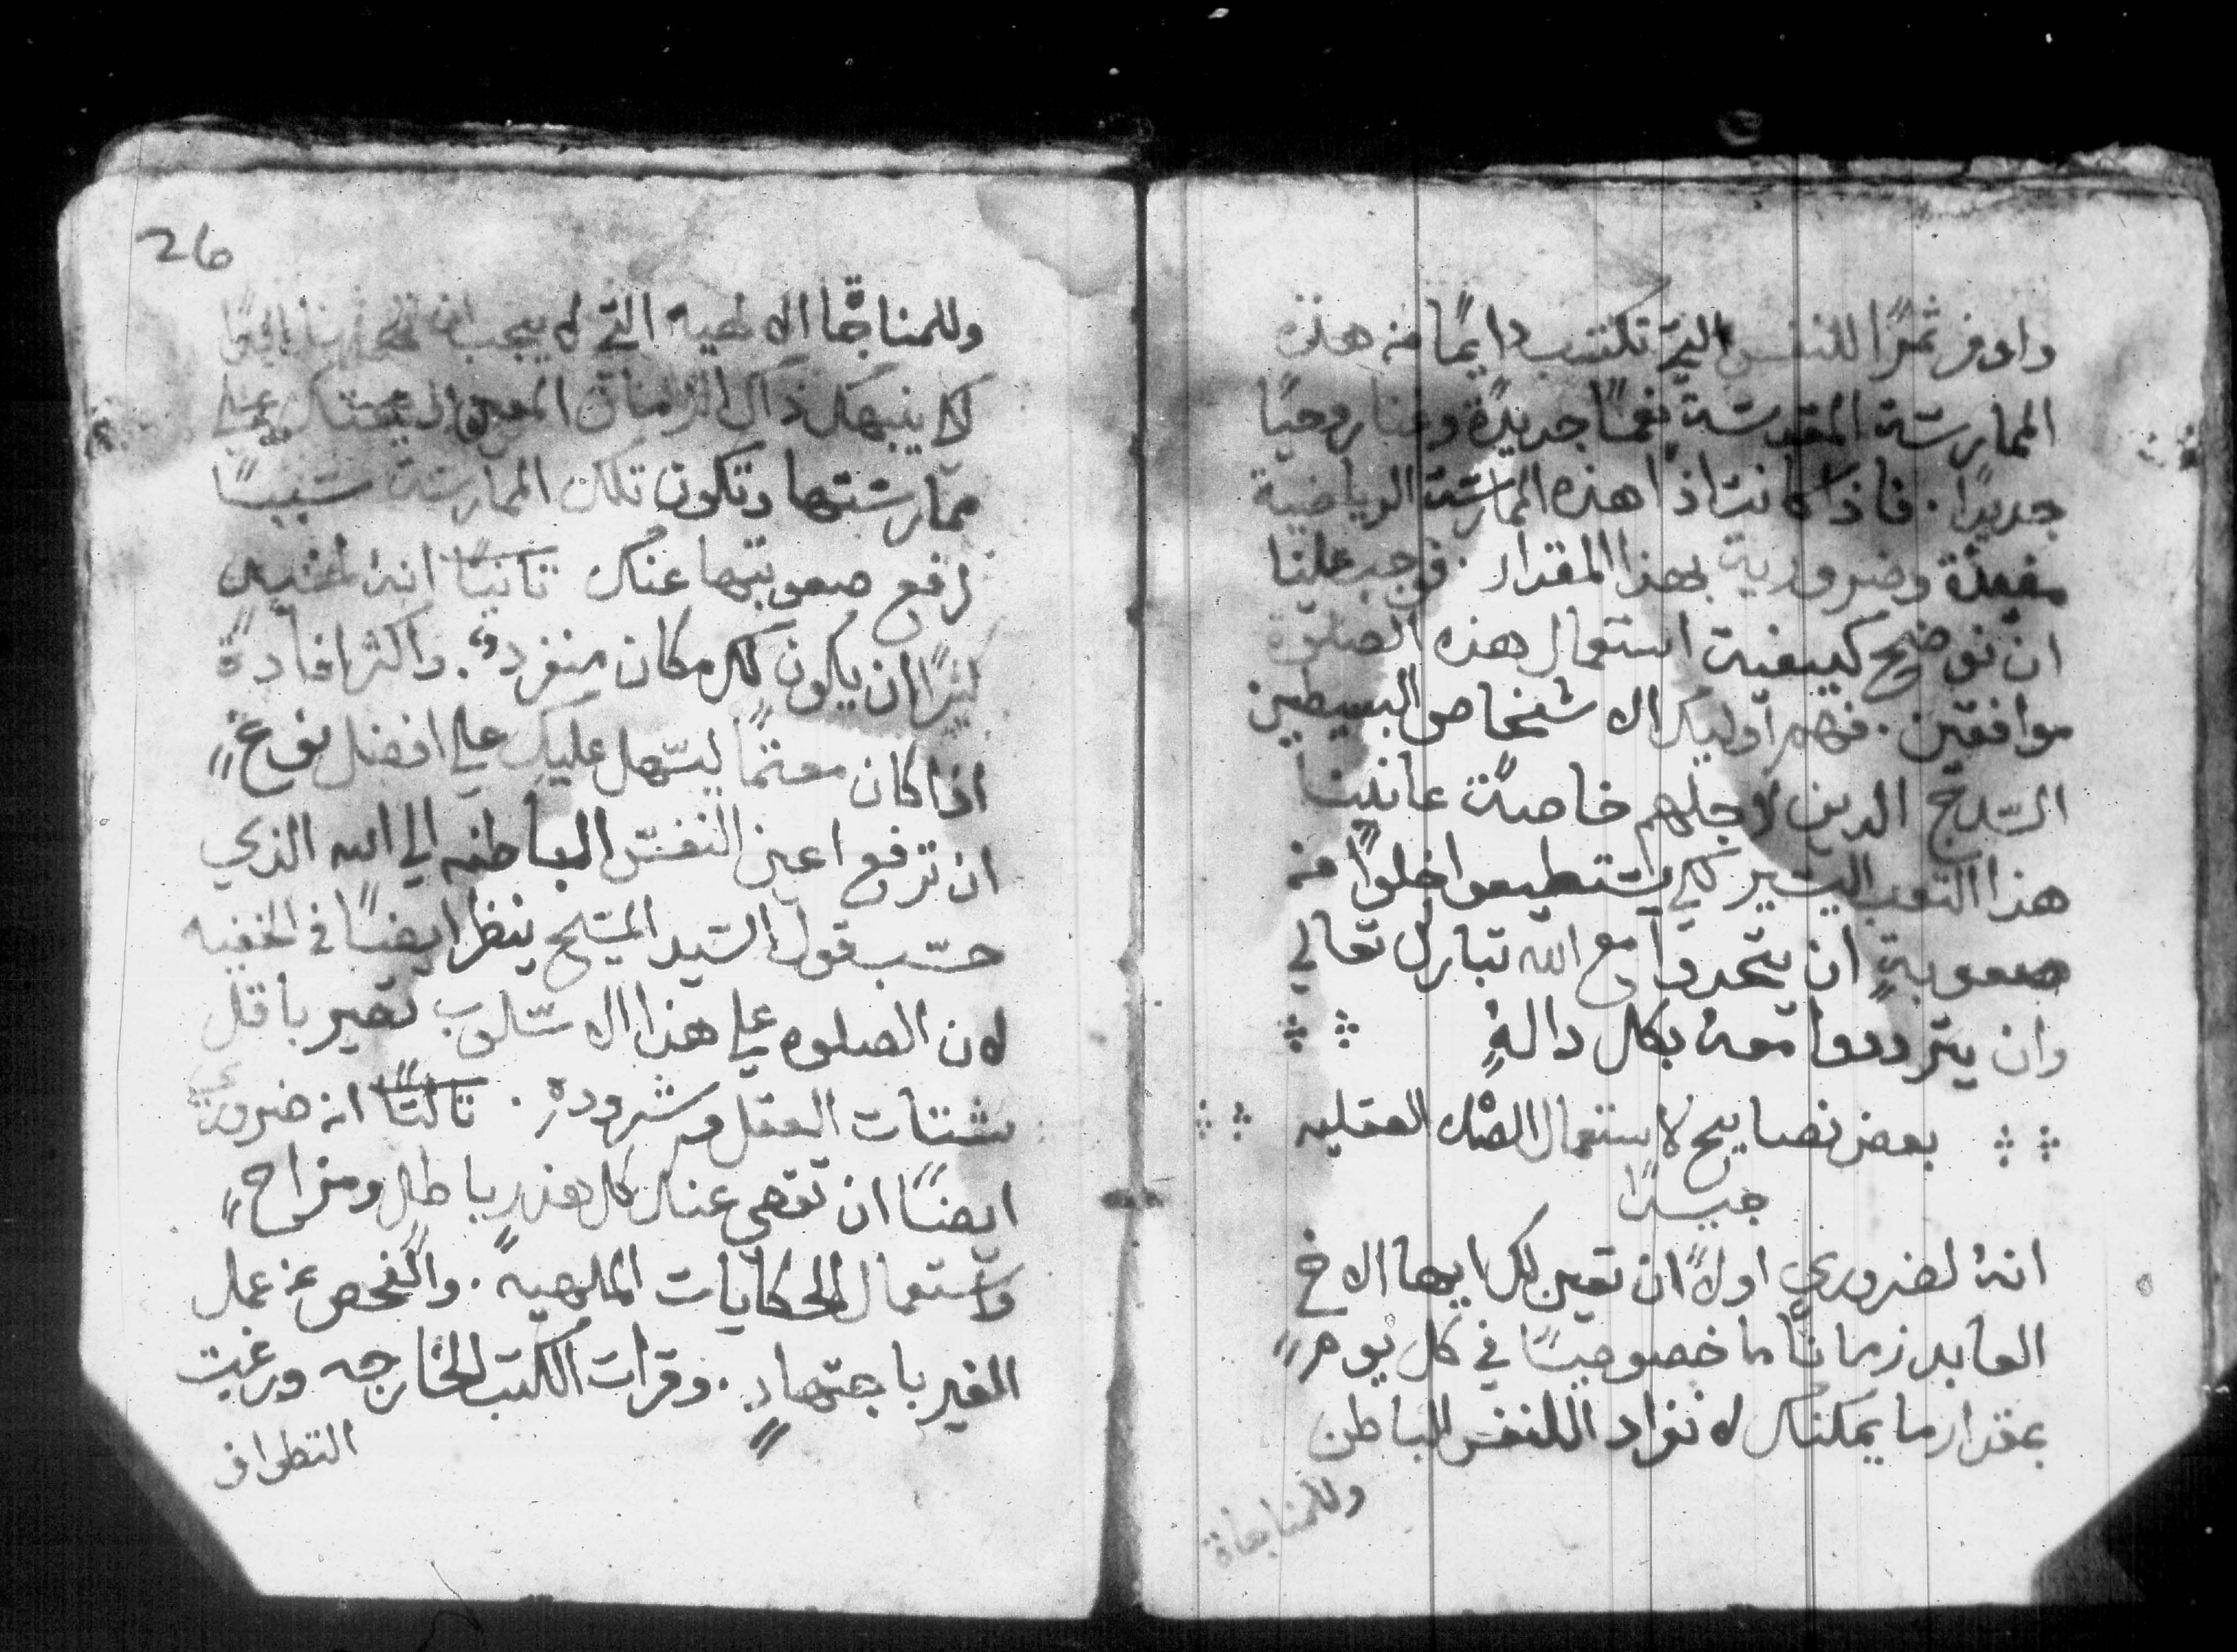 واوفر ثمرًا للنفس التي تكتسب دايمًا من هذه
الممارسة المقدسة نعمًا جديدةً وغنا روحيًا
جديدًا. فاذ كانت اذًا هذه الممارسة الرياضية
مفيدة وضرورية بهذا المقدار. فوجب علينا
ان نوضح كيفية استعمال هذه الصلوة
موافقين. فهم اوليك الاشخاص البسيطين
السدج الدين لاجلهم خاصةً عانينا
هذا التعب اليسير لكي يستطيعوا خلوًا من
صعوبةٍ ان يتحدوا مع الله تبارك تعالي
وان يترددوا معه بكل دالةٍ
بعض نصايح لاستعمال الصلاه العقليه
جيدًا
انهُ لضروري اولاً ان تعين لك ايها الاخ
العابد زمانًا ما خصوصيًا في كل يومٍ
بمقدار ما يمكنك لانفراد النفس الباطن
وللمناجاة
26
وللمناجاة الالهيه التي لا يجب ان
لكي ينبهك ذاك الزمان المعين الي علي
ممارستها وتكون تلك الممارسة سببًا
لرفع صعوبتها عنك ثانيًا انهُ لمفيد
كثيرًا ان يكون لك مكان منفرد. واكثر افادةً
اذا كان معتمًا ليسهل عليك علي افضل نوعٍ
ان ترفع اعين النفس الباطنه الي الله الذي
حسب قول السيد المسيح ينظر ايضًا في الخفيه
لان الصلوه علي هذا الاسلوب تصير باقل
شتات العقل وشروده. ثالثًا انه ضروري
ايضًا ان تقصي عنك كل هذرٍ باطلٍ ومزاحٍ
واستعمال الحكايات الملهيه. والفحص عن عمل
الغير باجتهادٍ. وقرات الكتب الخارجه ورغبت
التطواف